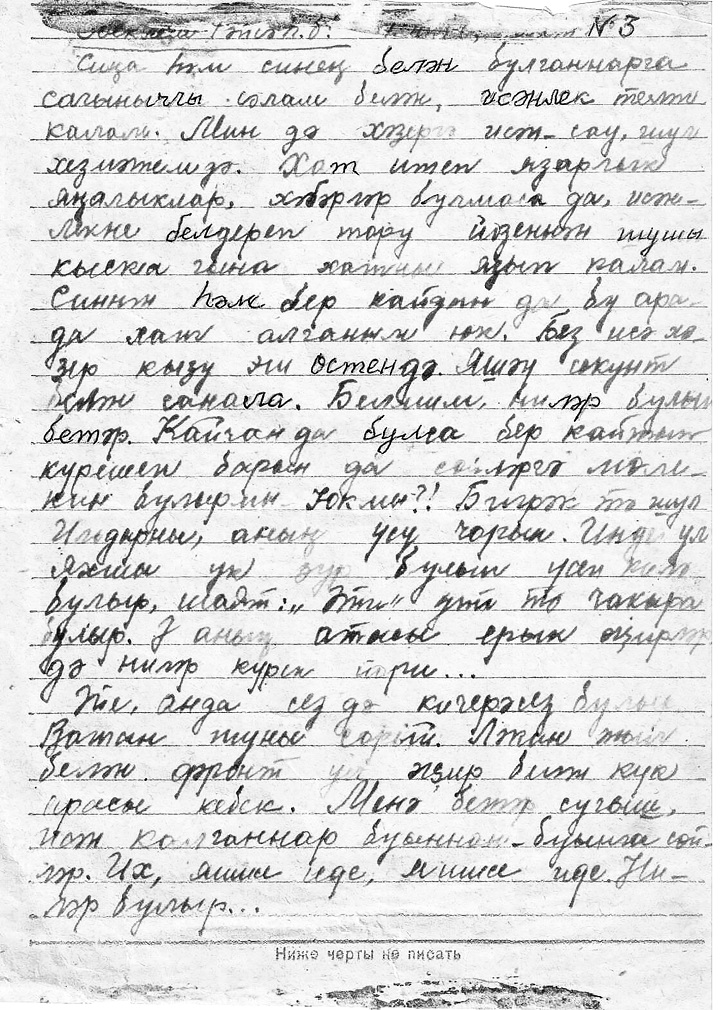 № 3
Сиңа һәм синең белән булганнарга
сагынычлы сәлам белән, исәнлек теләп
калам. Мин дә хәзергә исән-сау, шул
хезмәтемдә. Хат итеп язарлык
яңалыклар, хәбәрләр булмаса да, исән-
лекне белдереп тору йөзеннән шушы
кыска гына хатны язып калам.
Синнән һәм бер кайдан да бу ара-
да хат алганым юк. Без исә хә-
зер кызу эш өстендә. Яшәү секунт
белән санала. Белмим, ниләр булып
бетәр. Кайчан да булса бер кайтып
күрешеп барын да сөйләргә мөм-
кин булырмы - Юкмы?! Бигрәк тә шул
аның үсү чорын. Инде ул
яхшы ук зур булып үсеп
булыр, шаят: „Әти" дип тә чакыра
булыр. Ә аның атасы ерак җирләр
дә ниләр күреп йөри...
Әйе, анда сез дә кичерәсез булыр
Ватан шуны сорый. Ләкин тыл
белән фронт ул җир белән күк
арасы кебек. Менә бетәр сугыш,
исән калганнар буыннан-буынга сөй-
ләр. Их, яшисе иде, яшисе иде. Ни-
ләр булыр...
Ниже черты не писать